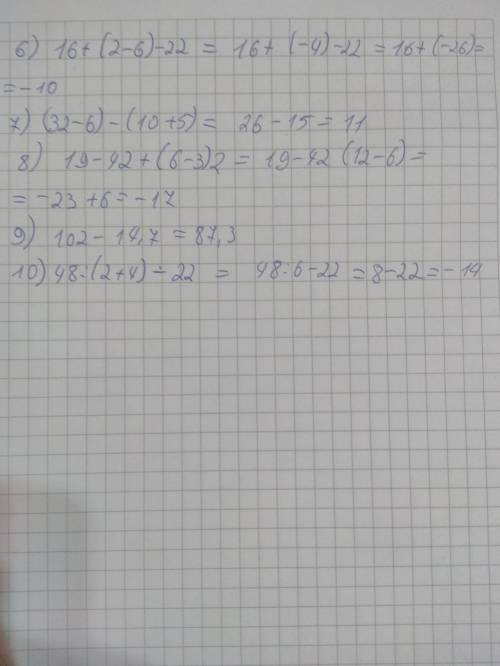 6) 16+(2-6)-22 = 16+ (-4)-22 = 16+(-26)=
=-10
7) (32-6)-(10+5)= 26-15= 11
8) 19-42+(6-3)2 = 19-42 (12-6)=
=-23+6=-17
9) 102-14,7 = 87,3
10) 48:(2+4)-22 = 48:6-22 = 8-22=-14